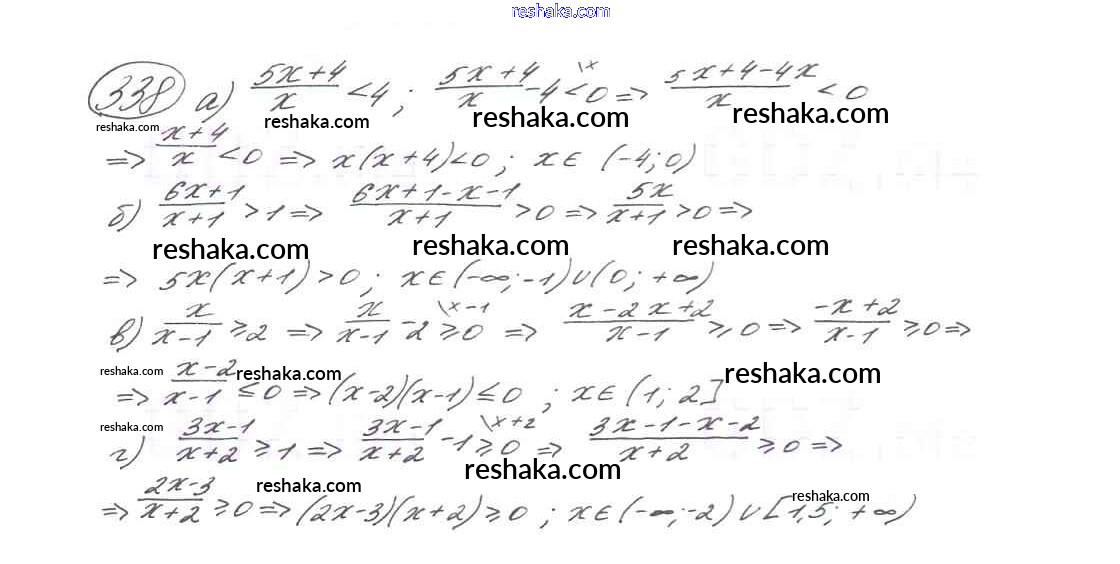 reshaka.com
338 а) (5x+4)/x < 4 ; (5x+4)/x - 4 \x < 0 => (5x+4-4x)/x < 0
reshaka.com reshaka.com reshaka.com reshaka.com
=> (x+4)/x < 0 => x(x+4) < 0 ; x ∈ (-4; 0)
б) (6x+1)/(x+1) > 1 => (6x+1-x-1)/(x+1) > 0 => 5x/(x+1) > 0 =>
reshaka.com reshaka.com reshaka.com
=> 5x(x+1) > 0 ; x ∈ (-∞; -1) ∪ (0; +∞)
в) x/(x-1) ≥ 2 => x/(x-1) - 2 \x-1 ≥ 0 => (x-2x+2)/(x-1) ≥ 0 => (-x+2)/(x-1) ≥ 0 =>
reshaka.com reshaka.com reshaka.com
=> (x-2)/(x-1) ≤ 0 => (x-2)(x-1) ≤ 0 ; x ∈ (1; 2]
reshaka.com
г) (3x-1)/(x+2) ≥ 1 => (3x-1)/(x+2) - 1 \x+2 ≥ 0 => (3x-1-x-2)/(x+2) ≥ 0 =>
reshaka.com reshaka.com reshaka.com
=> (2x-3)/(x+2) ≥ 0 => (2x-3)(x+2) ≥ 0 ; x ∈ (-∞; -2) ∪ [1,5; +∞)